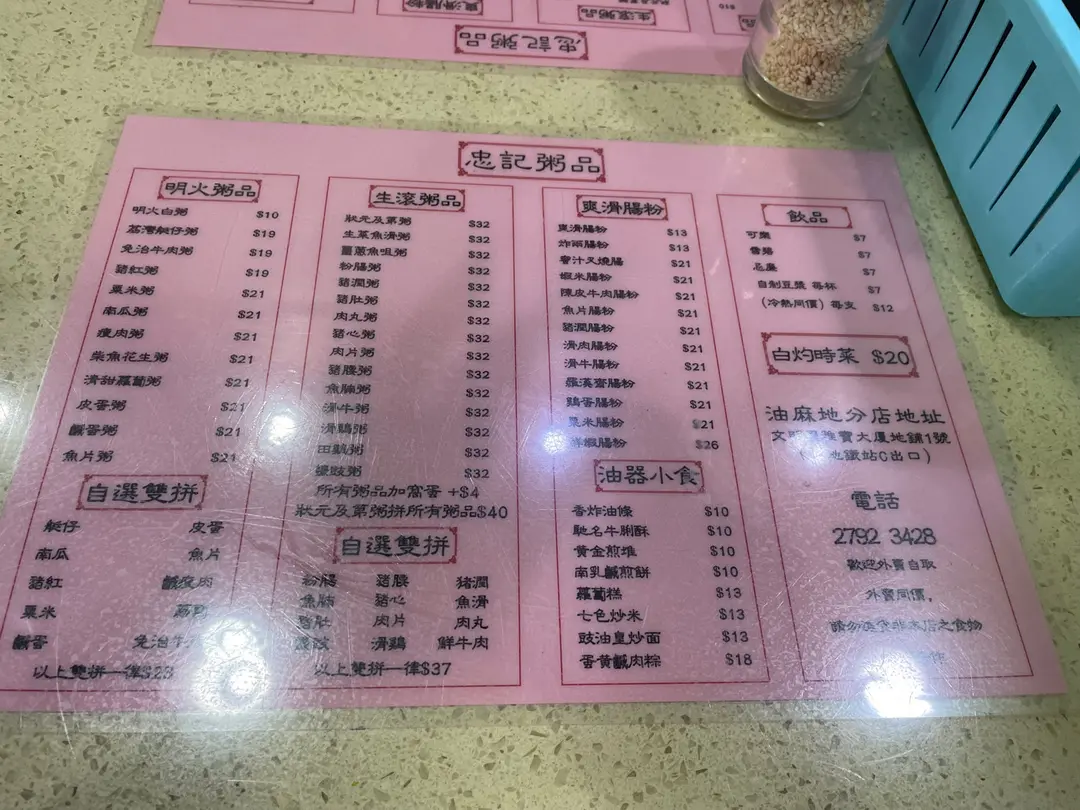 忠記粥品
忠記粥品
明火粥品
明火白粥 $10
荔灣艇仔粥 $19
免治牛肉粥 $19
豬紅粥 $19
粟米粥 $21
南瓜粥 $21
瘦肉粥 $21
柴魚花生粥 $21
清甜蘿蔔粥 $21
皮蛋粥 $21
鹹蛋粥 $21
魚片粥 $21
自選雙拼
艇仔 皮蛋
南瓜 魚片
豬紅 鹹瘦肉
粟米
鹹蛋 免治牛
以上雙拼一律$23
生滾粥品
狀元及第粥 $32
生菜魚滑粥 $32
薑蔥魚咀粥 $32
粉腸粥 $32
豬潤粥 $32
豬肚粥 $32
肉丸粥 $32
豬心粥 $32
肉片粥 $32
豬腰粥 $32
魚腩粥 $32
滑牛粥 $32
滑雞粥 $32
田雞粥 $32
鹽豉粥 $32
所有粥品加窩蛋 +$4
狀元及第粥拼所有粥品$40
自選雙拼
粉腸 豬腰 猪潤
魚腩 豬心 魚滑
豬肚 肉片 肉丸
滑鷄 鮮牛肉
以上雙拼一律$37
爽滑腸粉
爽滑腸粉 $13
炸兩腸粉 $13
蜜汁叉燒腸 $21
蝦米腸粉 $21
陳皮牛肉腸粉 $21
魚片腸粉 $21
豬潤腸粉 $21
滑肉腸粉 $21
滑牛腸粉 $21
羅漢齋腸粉 $21
鷄蛋腸粉 $21
粟米腸粉 $21
鮮蝦腸粉 $26
油器小食
香炸油條 $10
馳名牛脷酥 $10
黃金煎堆 $10
南乳鹹煎餅 $10
蘿蔔糕 $13
七色炒米 $13
豉油皇炒面 $13
蛋黃鹹肉粽 $18
飲品
可樂 $7
雪碧 $7
忌廉 $7
自制豆漿 每杯 $7
(冷熱同價) 每支 $12
白灼時菜 $20
油麻地分店地址
雅賓大廈地舖1號
地鐵站C出口)
電話
2792 3428
歡迎外賣自取
外賣同價,
請勿 食非本店之食物